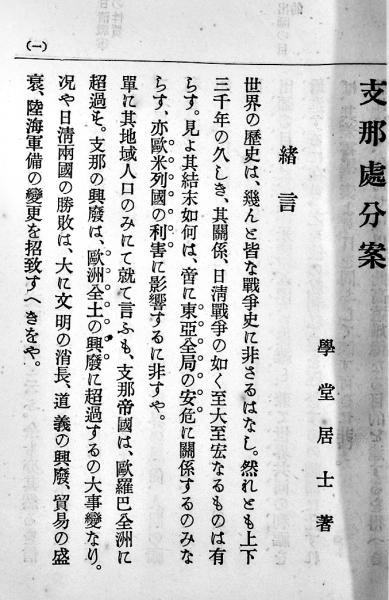 支那處分案
學堂居士著
緒言
世界の歷史は、幾んと皆な戰爭史に非さるはなし。然れとも上下
三千年の久しき、其關係、日淸戰爭の如く至大至宏なるものは有
らす。見よ其結末如何は、啻に東亞全局の安危に關係するのみな
らす、亦歐米列國の利害に影響するに非すや。
單に其地域人口のみにて就て言ふも、支那帝國は、歐羅巴全洲に
超過も。支那の興廢は、歐洲全土の興廢に超過するの大事變なり。
况や日淸兩國の勝敗は、大に文明の消長、道義の興廢、貿易の盛
衰、陸海軍備の變更を招致すへきをや。
(一)